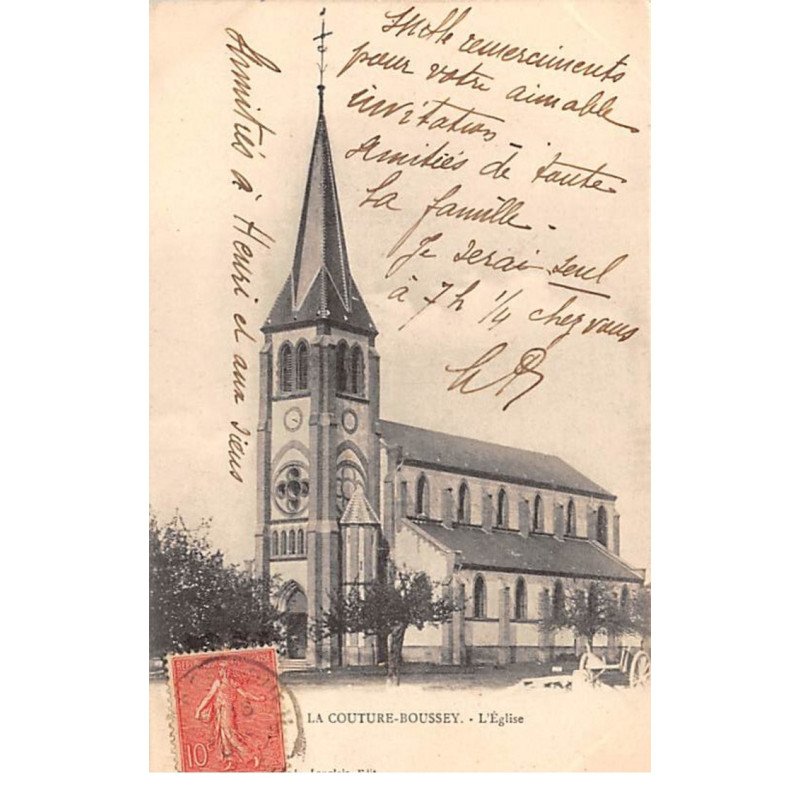 Mille remerciments
pour votre aimable
invitation
Amitiés de toute
la famille.
Je serai seul
à 7h 1/4 chez vous
Amitiés à Henri et aux siens
LA COUTURE-BOUSSEY. - L'Église
10c
Langlois, Edit.